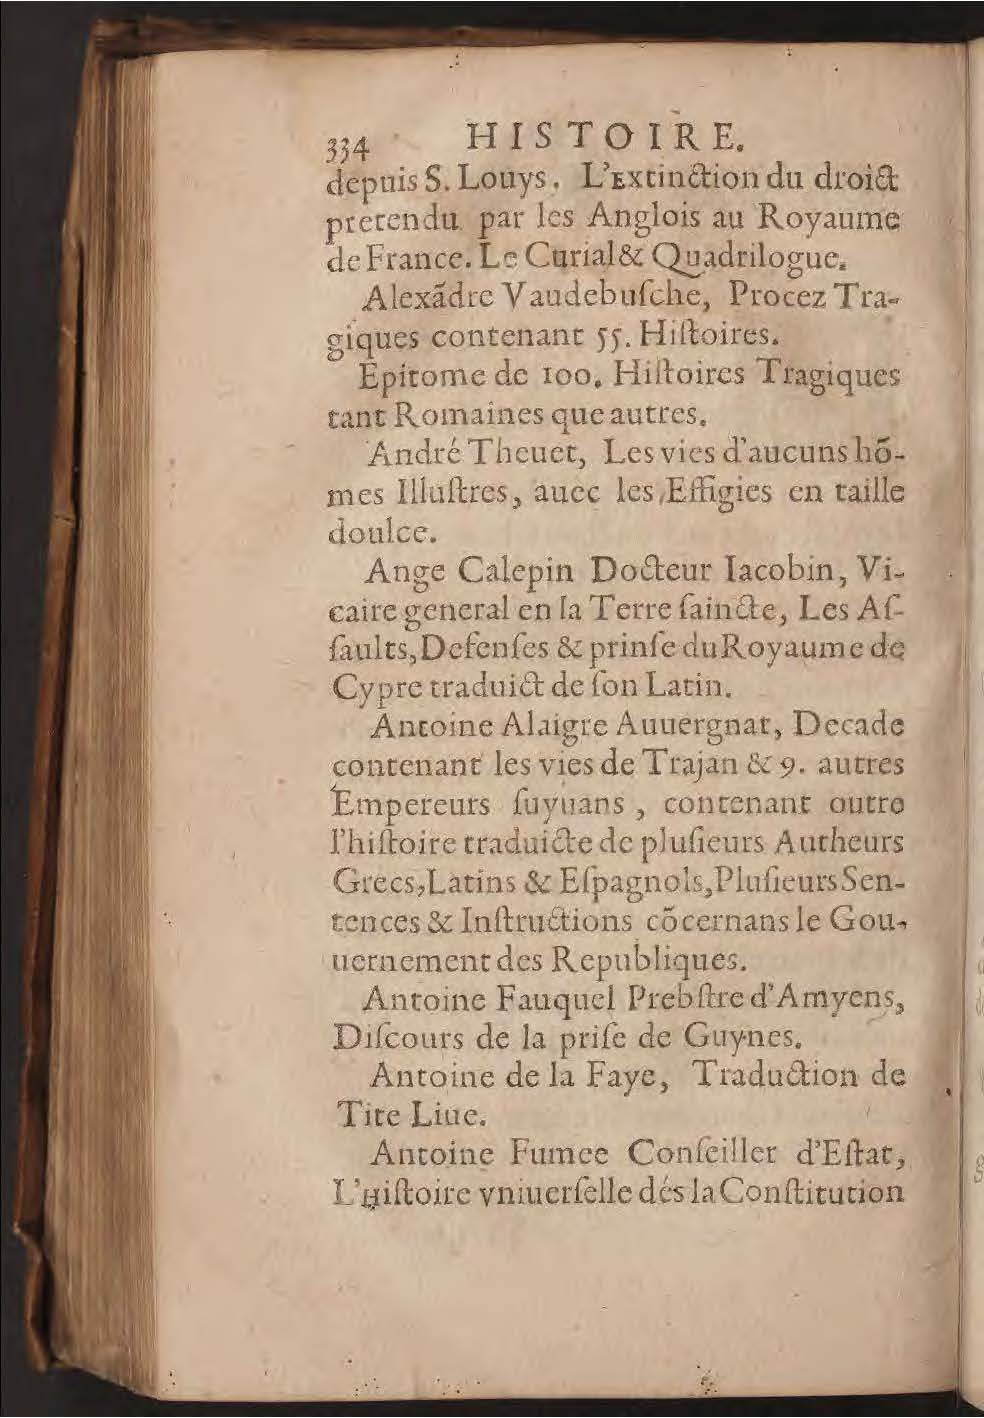 334 HISTOIRE.
depuis S. Louys. L'Extinction du droict
pretendu par les Anglois au Royaume
de France. Le Curial & Quadrilogue.
Alexãdre Vaudebuſche, Procez Tra-
giques contenant 55. Hiſtoires.
Epitome de 100. Hiſtoires Tragiques
tant Romaines que autres.
André Theuet, Les vies d'aucuns hõ-
mes Illuſtres, auec les Effigies en taille
doulce.
Ange Calepin Docteur Iacobin, Vi-
caire general en la Terre ſaincte, Les Aſ-
ſaults, Defenſes & prinſe du Royaume de
Cypre traduict de ſon Latin.
Antoine Alaigre Auuergnat, Decade
contenant les vies de Trajan & 9. autres
Empereurs ſuyuans, contenant outre
l'hiſtoire traduicte de pluſieurs Autheurs
Grecs, Latins & Eſpagnols, Pluſieurs Sen-
tences & Inſtructions cõcernans le Gou-
uernement des Republiques.
Antoine Fauquel Prebſtre d'Amyens,
Diſcours de la priſe de Guynes.
Antoine de la Faye, Traduction de
Tite Liue.
Antoine Fumee Conſeiller d'Eſtat,
L'Hiſtoire vniuerſelle dés la Conſtitution